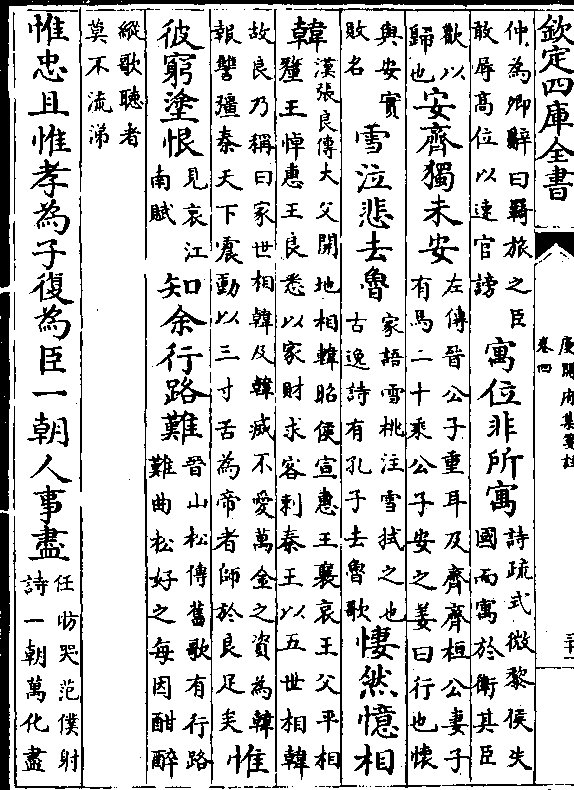 欽定四庫全書
庾開府集箋註
卷四
三十一
仲為卿辭曰羇旅之臣
敢辱高位以速官謗
寓位非所寓
詩疏式微黎侯失
國而寓於衛其臣
勸以
歸也
安齊獨未安
左傳晉公子重耳及齊齊桓公妻子
有馬二十乘公子安之姜曰行也懷
與安實
敗名
雪泣悲去魯
家語雪桃注雪拭之也
古逸詩有孔子去魯歌
悽然憶相
韓
漢張良傳大父開地相韓昭侯宣惠王襄哀王父平相
釐王悼惠王良悉以家財求客刺秦王以五世相韓
故良乃稱曰家世相韓及韓滅不愛萬金之資為韓
報讐彊秦天下震動以三寸舌為帝者師於良足矣
惟
彼窮塗恨
見哀江
南賦
知余行路難
晉山松傳舊歌有行路
難曲松好之每因酣醉
縱歌聽者
莫不流涕
惟忠且惟孝為子復為臣一朝人事盡
任昉哭范僕射
詩一朝萬化盡